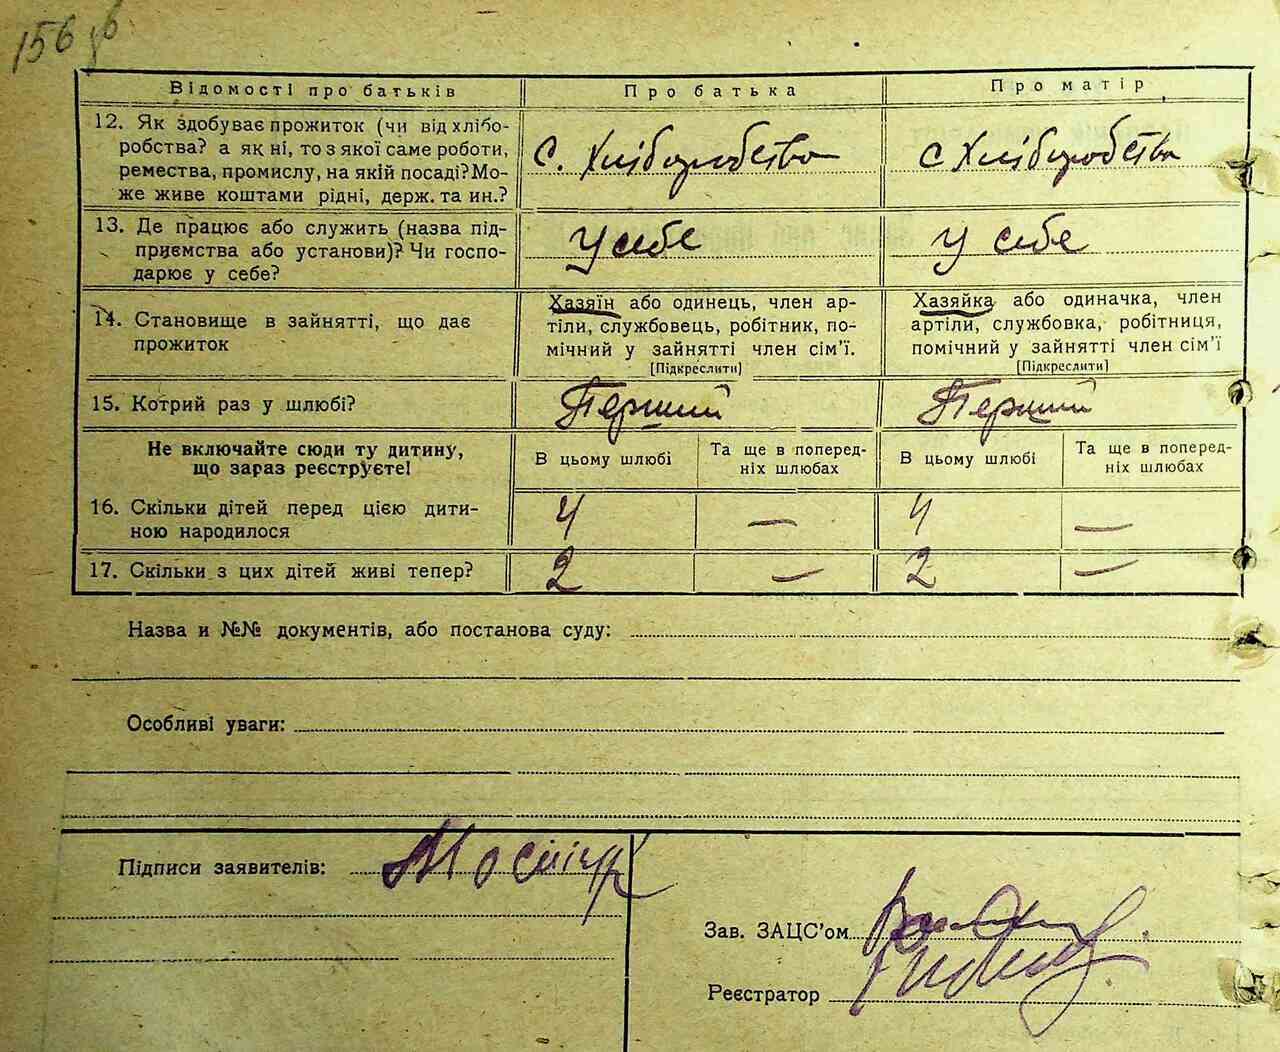 156
Відомості про батьків Про батька Про матір
12. Як здобуває прожиток (чи від хлібо-
робства? а як ні, то з якої саме роботи,
ремества, промислу, на якій посаді? Мо-
же живе коштами рідні, держ. та ин.?
С. Хліборобства с Хліборобства
13. Де працює або служить (назва під-
приємства або установи)? Чи госпо-
дарює у себе?
У себе У себе
14. Становище в зайнятті, що дає
прожиток
Хазяїн або одинець, член ар-
тіли, службовець, робітник, по-
мічний у зайнятті член сім'ї.
[Підкреслити]
Хазяйка або одиначка, член
артіли, службовка, робітниця,
помічний у зайнятті член сім'ї
[Підкреслити]
15. Котрий раз у шлюбі? Перший Перший
Не включайте сюди ту дитину,
що зараз реєструєте!
В цьому шлюбі Та ще в поперед-
ніх шлюбах
В цьому шлюбі Та ще в поперед-
ніх шлюбах
16. Скільки дітей перед цією дити-
ною народилося
4 — 4 —
17. Скільки з цих дітей живі тепер? 2 — 2 —
Назва и №№ документів, або постанова суду:
Особливі уваги:
Підписи заявителів:
Зав. ЗАЦС'ом
Реєстратор